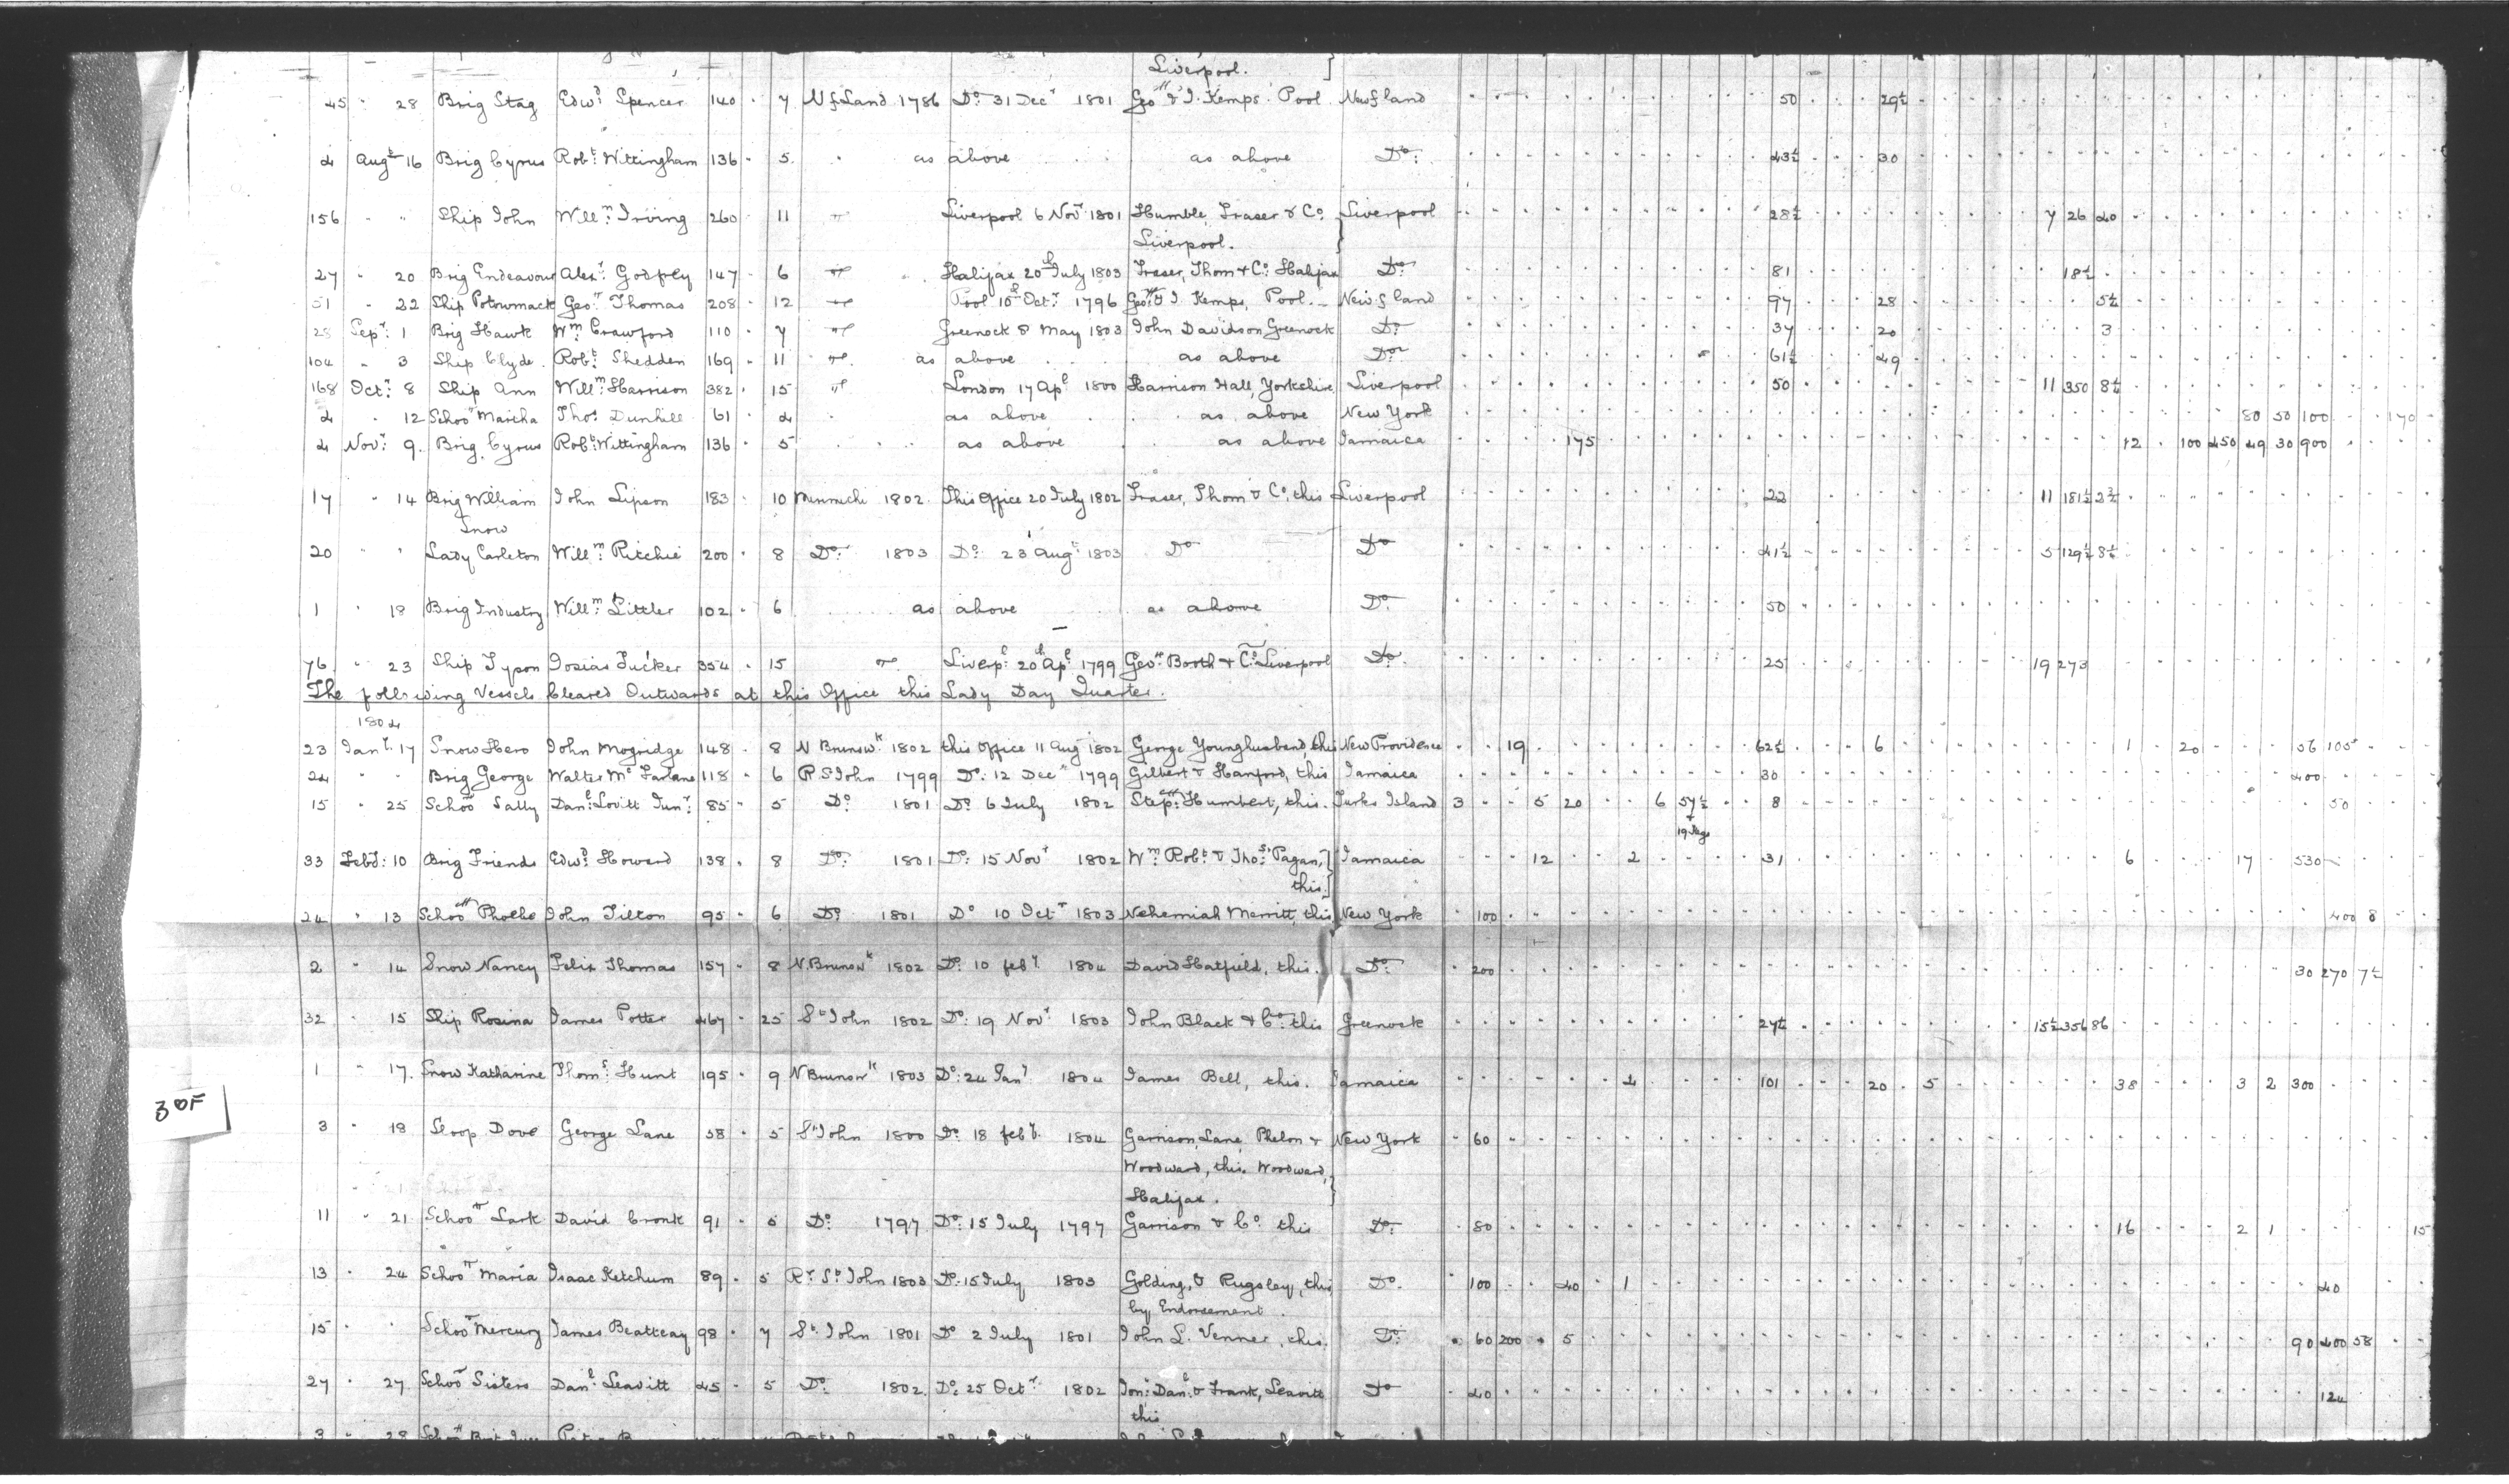 Liverpool.
45 " 28 Brig Stag Edwd. Spencer 140 . 7 Nf.Land 1786 Do. 31 Decr 1801 Geo & J. Kemps. Pool Newf land 50 29½
4 Augt 16 Brig Cyrus Robt. Wittingham 136 . 5 as above as above Do. 43½ 30
156 " " Ship John Willm. Irving 260 11 " Liverpool 6 Novr 1801 Humble, Fraser & Co. Liverpool 28½ 7 26 40
Liverpool.
27 " 20 Brig Endeavour Alexr. Godfrey 147 . 6 Halifax 20th July 1803 Fraser, Thom & Co. Halifax Do 81 18½
51 " 22 Ship Potowmack Geo. Thomas 208 . 12 Pool 10th Octr 1796 Geo & J. Kemps, Pool. Newf land 97 28 5½
28 Sepr. 1 Brig Hawk Wm Crawford 110 . 7 Greenock 8 May 1803 John Davidson Greenock Do 37 20 3
104 " 3 Ship Clyde. Robt. Shedden 169 . 11 as above as above Do 61½ 49
168 Octr. 8 Ship Ann Willm. Harrison 382 . 15 London 17 Apl 1800 Harrison Hall, Yorkshire Liverpool 50 11 350 8½
4 " 12 Schoor Martha Thos. Dunhill 61 . 4 as above as above New York 80 50 100 170
4 Novr. 9. Brig Cyrus Robt. Wittingham 136 . 5 as above as above Jamaica 175 12 100 450 49 30 900
17 " 14 Brig William John Lipson 183 . 10 Mirimichi 1802. This Office 20 July 1802 Fraser, Thom & Co, this Liverpool 22 11 181½ 2¾
Snow
20 " " Lady Carleton Willm. Ritchie 200 . 8 Do. 1803 Do. 23 Augt. 1803 Do Do 41½ 5 129½ 8½
1 " 18 Brig Industry Willm. Littler 102 . 6 as above as above Do. 50
76. " 23 Ship Tyson Josias Tucker 354 . 15 Liverpl 20th Apl 1799 Geo. Booth & Co. Liverpool Do. 25 19 273
The following Vessels Cleared Outwards at this Office this Lady Day Quarter.
1804
23 Jany. 17 Snow Hero John Mogridge 148 . 8 N Brunswk. 1802 this Office 11 Aug 1802 George Younghusband, this New Providence 19 62½ 6 1 20 56 105
24 " " Brig George Walter Mc Farlane 118 . 6 R St John 1799 Do. 12 Decr 1799 Gilbert & Hanford, this Jamaica 30 400
15 " 25 Schoor Sally Danl. Lovitt Junr. 85 . 5 Do 1801 Do 6 July 1802 Stepn. Humbert, this. Turks Island 3 5 20 6 57½ 8 50
+
19 Kegs
33 Feby. 10 Brig Friends Edwd. Howard 138 . 8 Do. 1801 Do. 15 Novr 1802 Wm. Robt. & Thos. Pagan, Jamaica 12 2 31 6 17 530
this.
24 " 13 Schoor Phoebe John Tilton 95 . 6 Do 1801 Do 10 Octr 1803 Nehemiah Merritt, this New York 100 400 8
2 " 14 Snow Nancy Felix Thomas 157 . 8 N. Brunswk 1802 Do. 10 feby. 1804 David Hatfield, this. Do. 200 30 270 7½
32 " 15 Ship Rosina James Potter 467 . 25 St John 1802 Do. 19 Novr 1803 John Black & Co. this Greenock 27½ 15½ 356 86
1 " 17. Snow Katharine Thoms. Hunt 195 . 9 N Brunswk 1803 Do. 24 Jany 1804 James Bell, this. Jamaica 101 20 5 38 3 2 300
3 " 18 Sloop Dove George Lane 58 . 5 St John 1800 Do 18 feby. 1804 Garrison, Lane, Phelon & New York 60
Woodward, this. Woodward,
Halifax.
11 " 21 Schoor Lark David Cronk 91 . 5 Do 1797 Do. 15 July 1797 Garrison & Co. this Do. 80 16 2 1 15
13 " 24 Schoor Maria Isaac Ketchum 89 . 5 Rr St. John 1803 Do. 15 July 1803 Golding, & Pugsley, this Do. 100 40 1 40
by Endorsement.
15 " " Schoor Mercury James Beatteay 98 . 7 St. John 1801 Do 2 July 1801 John L. Venner, this. Do. 60 200 5 90 400 58
27 " 27 Schoor Sisters Danl. Leavitt 45 . 5 Do. 1802. Do. 25 Octr. 1802 Jon. Danl. & Frank, Leavitt Do 40 124
this
3 " 28
30F